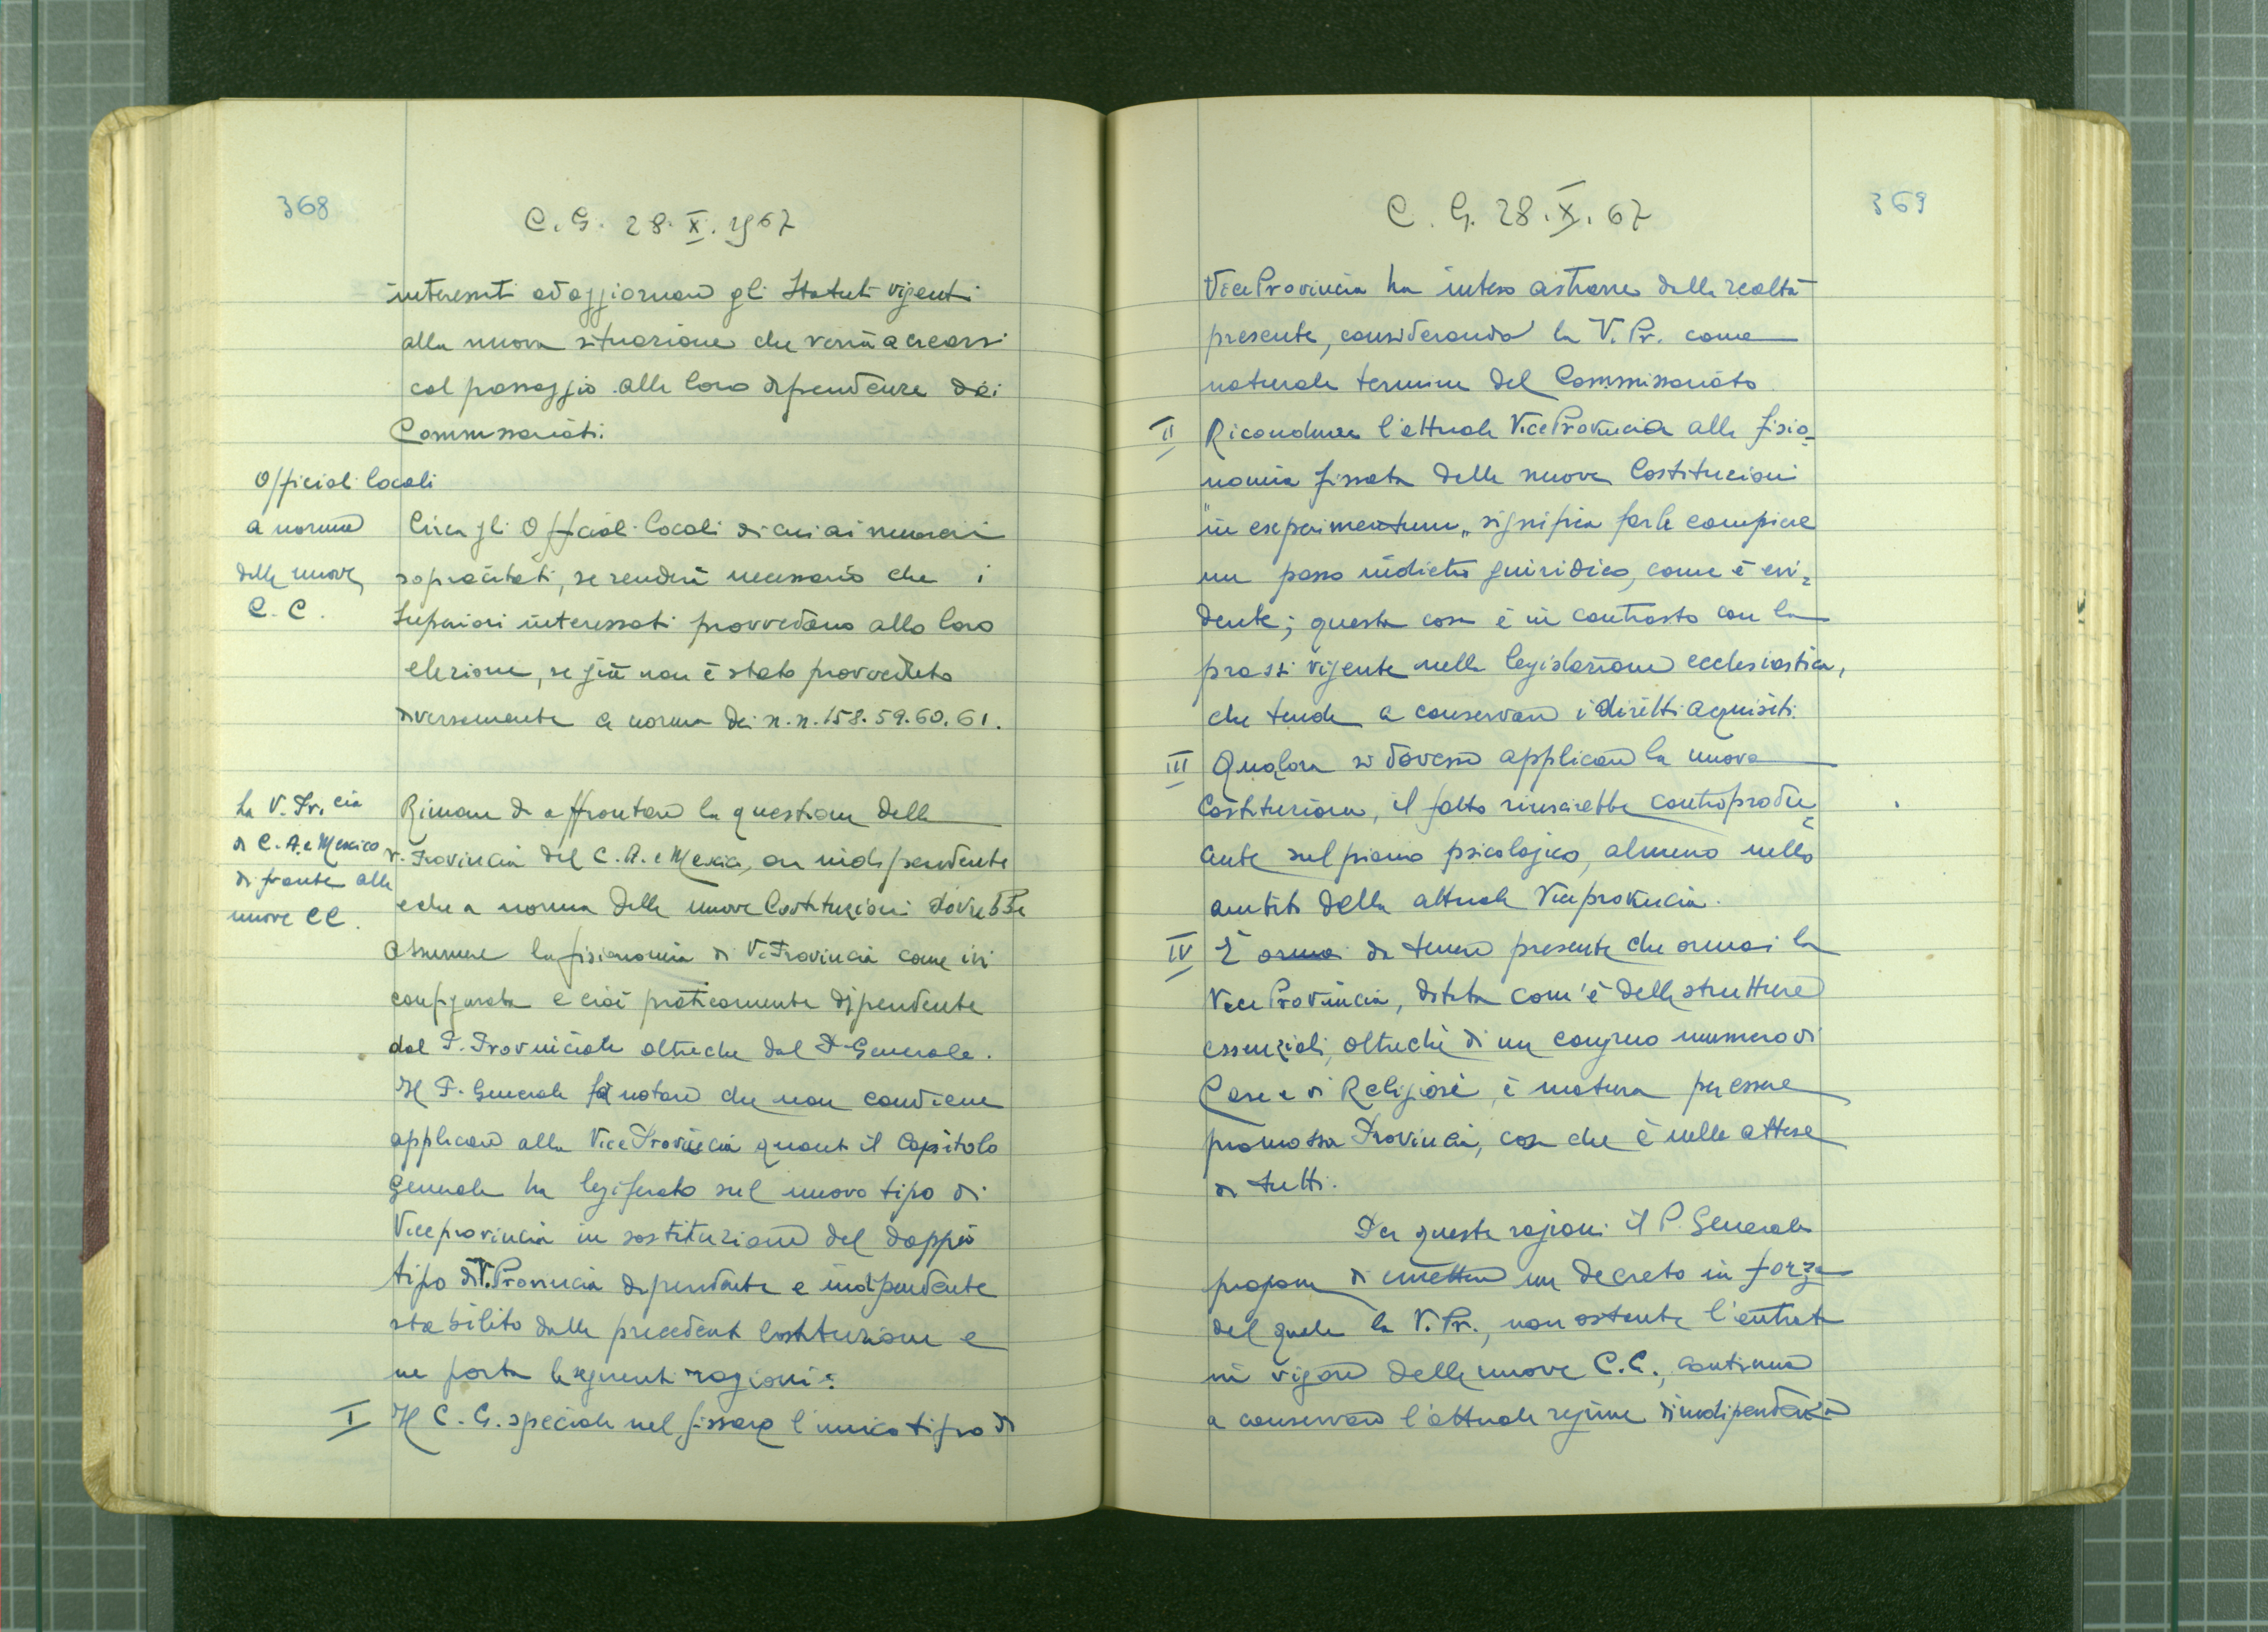 368
C. G. 28. X. 1967
interessati ad aggiornare gli Statuti vigenti
alla nuova situazione che verrà a crearsi
col passaggio alle loro dipendenze dei
Commissariati.
Officiali locali
a norma
delle nuove
C. C.
Circa gli Officiali locali di cui ai numeri
sopracitati, se renderà necessario che i
Superiori interessati provvedano alla loro
elezione, se già non è stato provveduto
diversamente a norma dei n.n. 158. 59. 60. 61.
La V. Pr.cia
di C. A. e Mexico
di fronte alle
nuove CC.
Rimane da affrontare la questione della
V. Provincia del C. A. e Mexico, ora indipendente
e che a norma delle nuove Costituzioni dovrebbe
assumere la fisionomia di V. Provincia come ivi
configurata e cioè praticamente dipendente
dal P. Provinciale oltreché dal P. Generale.
Il P. Generale fa notare che non conviene
applicare alla Vice Provincia quanto il Capitolo
Generale ha legiferato sul nuovo tipo di
Viceprovincia in sostituzione del doppio
tipo di V. Provincia dipendente e indipendente
stabilito dalle precedenti Costituzioni e
ne porta le seguenti ragioni:
I Il C. G. speciale nel fissare l'unico tipo di
369
C. G. 28. X. 67
Vice Provincia ha inteso astrarre dalla realtà
presente, considerando la V. Pr. come
naturale termine del Commissariato
II Ricondurre l'attuale Vice Provincia alla fisio=
nomia fissata dalle nuove Costituzioni
"in esperimentum" significa farle compiere
un passo indietro giuridico, come è evi=
dente; questa cosa è in contrasto con la
prassi vigente nella legislazione ecclesiastica,
che tende a conservare i diritti acquisiti.
III Qualora si dovesse applicare la nuova
Costituzione, il fatto riuscirebbe controprodu=
cente sul piano psicologico, almeno nello
ambito della attuale Viceprovincia.
IV È ormai da tenere presente che ormai la
Vice Provincia, dotata com'è delle strutture
essenziali, oltreché di un congruo numero di
Case e di Religiosi, è matura per essere
promossa Provincia, cosa che è nelle attese
di tutti.
Per queste ragioni il P. Generale
propone di emettere un decreto in forza
del quale la V. Pr., non ostante l'entrata
in vigore delle nuove C.C., continua
a conservare l'attuale regime di indipendenza